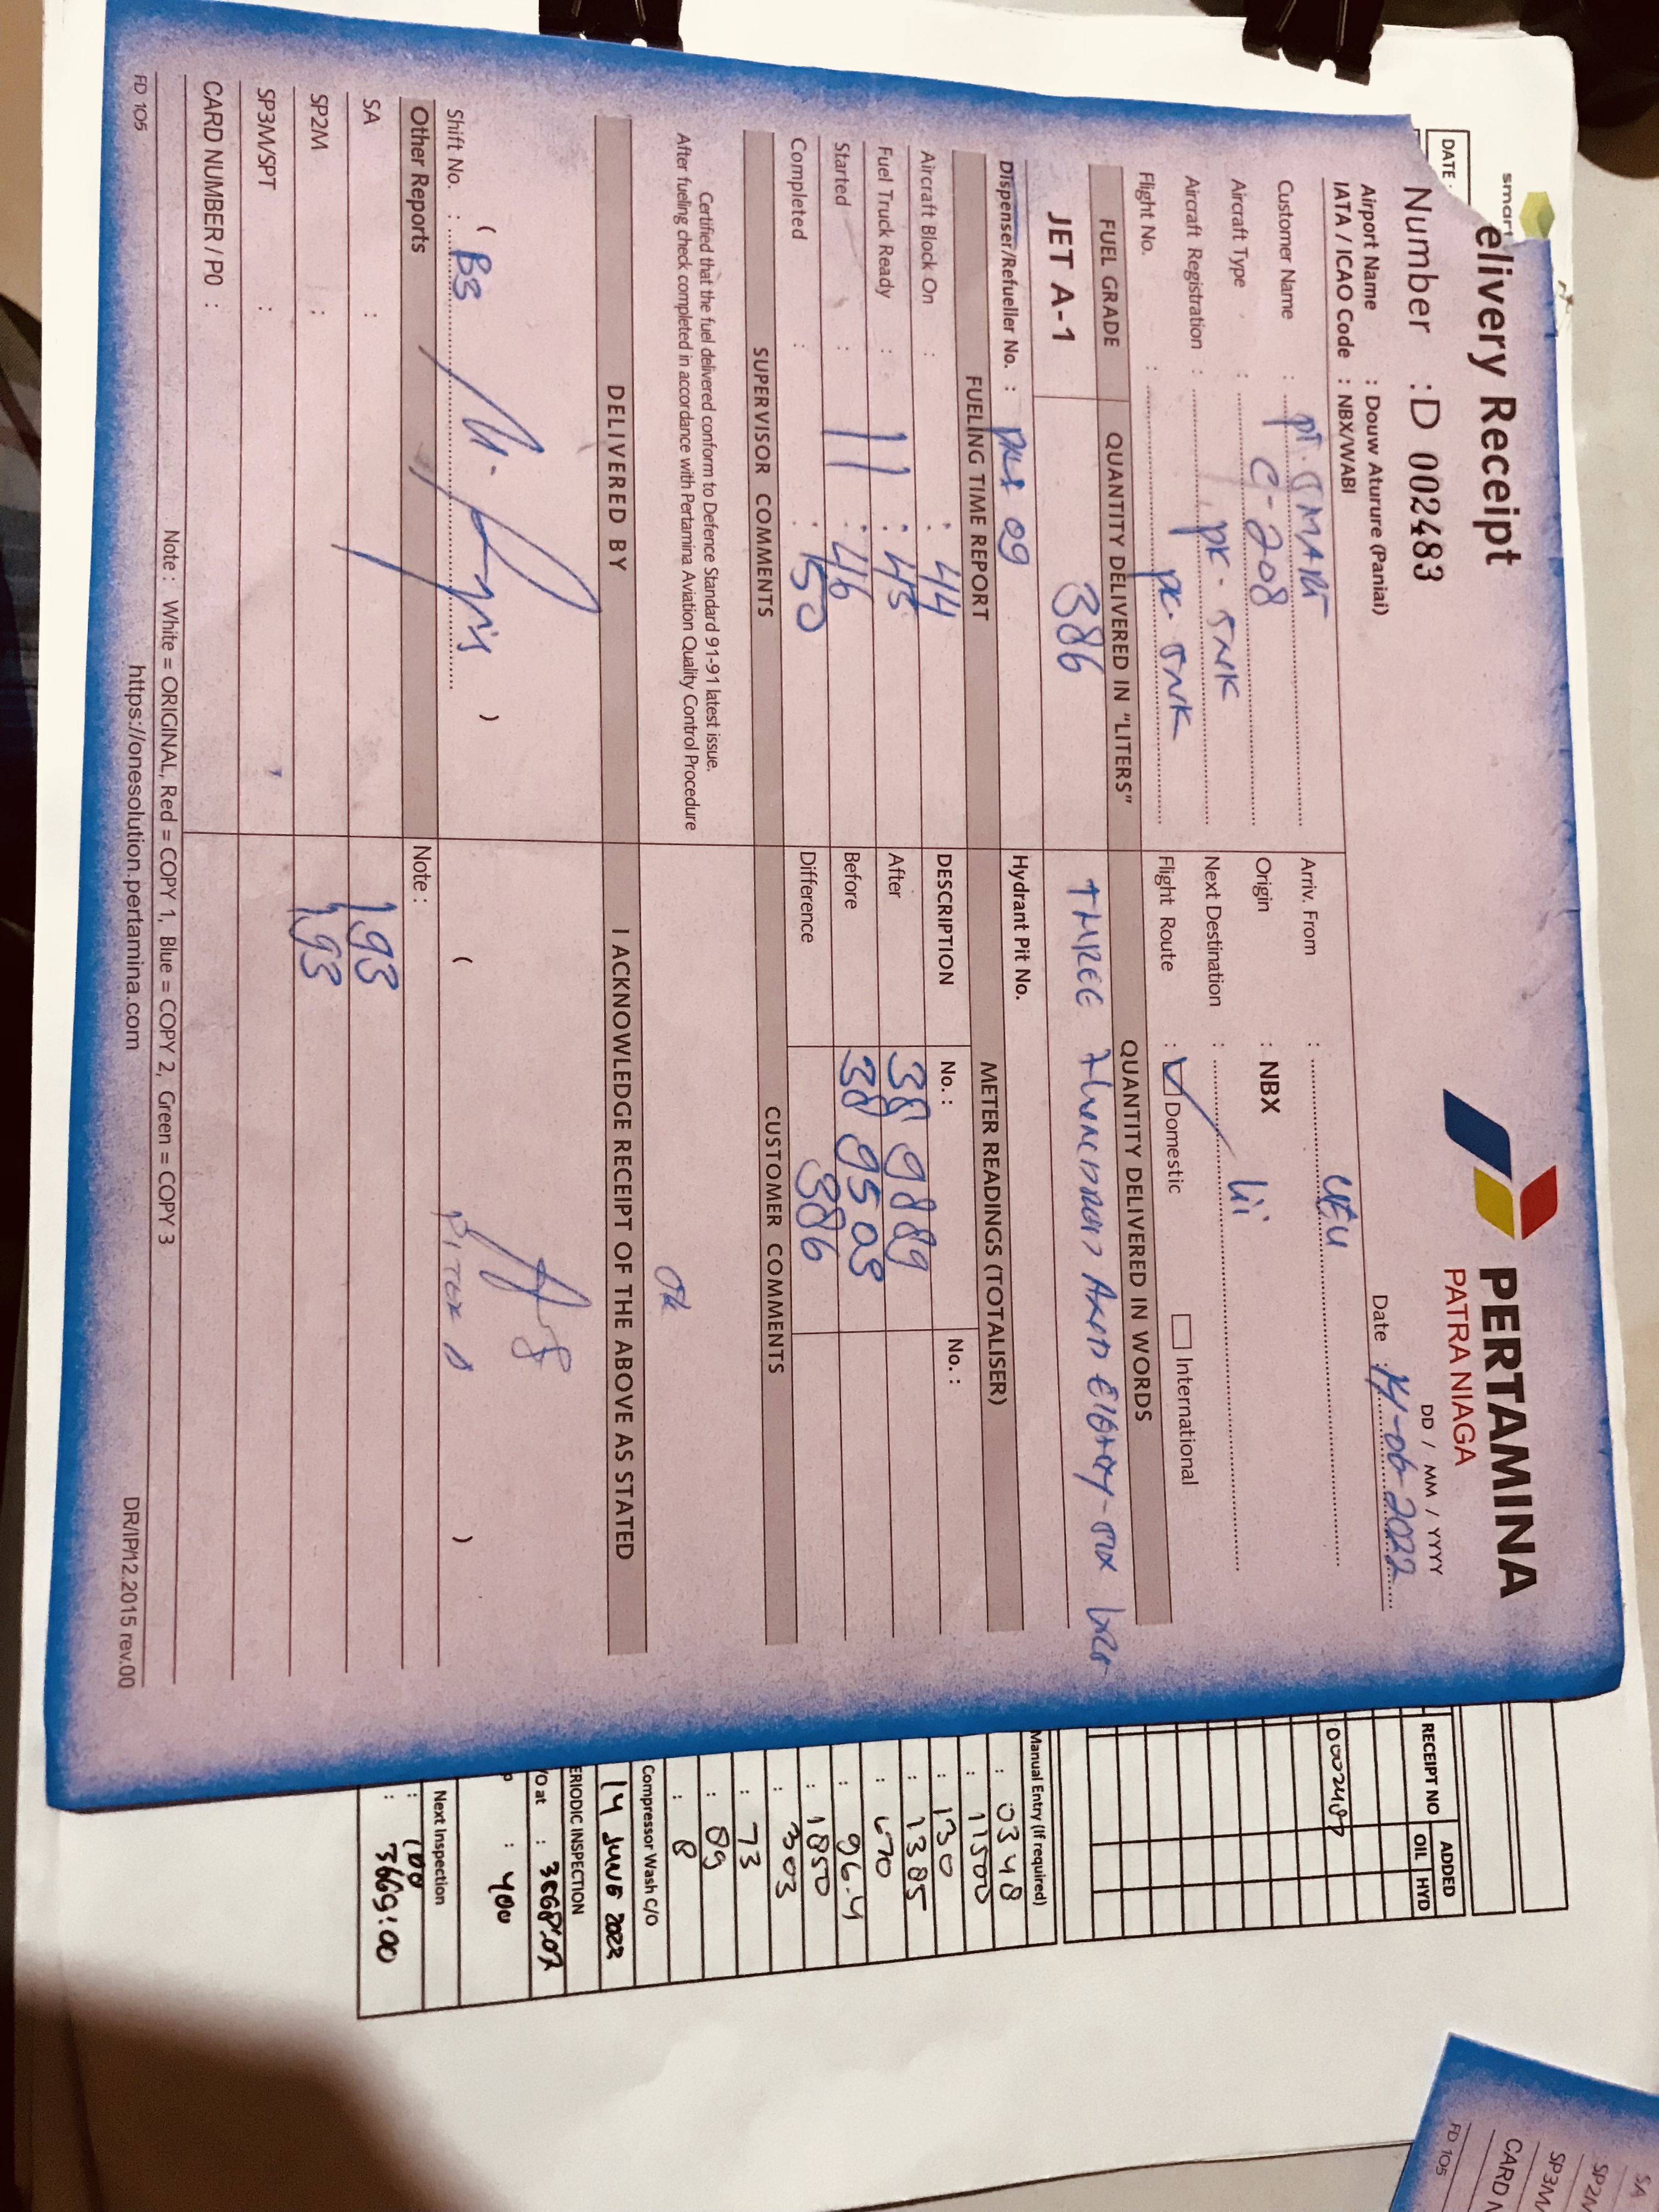 smart
DATE
elivery Receipt
PERTAMINA
PATRA NIAGA
Number : D 002483
DD / MM / YYYY
Date : 14-06-2022
Airport Name : Douw Aturure (Paniai)
IATA / ICAO Code : NBX/WABI
Customer Name : PT. SMART
Arriv. From :
Aircraft Type : C-208
Origin : NBX
Aircraft Registration : PK-SNK
Next Destination :
Flight No. : PK-SNK
Flight Route : Domestic International
FUEL GRADE QUANTITY DELIVERED IN "LITERS" QUANTITY DELIVERED IN WORDS
JET A-1 386 THREE AND EIGHTY-SIX
Dispenser/Refueller No. : 09
Hydrant Pit No.
FUELING TIME REPORT METER READINGS (TOTALISER)
Aircraft Block On : : 44
DESCRIPTION No. : No. :
Fuel Truck Ready : 11 : 45
After 38 9889
Started : 11 : 46
Before 38 9503
Completed : : 50
Difference 386
SUPERVISOR COMMENTS CUSTOMER COMMENTS
Certified that the fuel delivered conform to Defence Standard 91-91 latest issue.
After fueling check completed in accordance with Pertamina Aviation Quality Control Procedure
Ok
DELIVERED BY I ACKNOWLEDGE RECEIPT OF THE ABOVE AS STATED
Shift No. : ( B3 ) ( )
Other Reports Note :
SA : 193
SP2M : 193
SP3M/SPT :
CARD NUMBER / PO :
Note : White = ORIGINAL, Red = COPY 1, Blue = COPY 2, Green = COPY 3
FD 105 https://onesolution.pertamina.com DR/IP/12.2015 rev.00
RECEIPT NO ADDED
OIL HYD
Manual Entry (If required)
: 0348
: 11500
: 130
: 1385
: 670
: 96.4
: 1850
: 303
: 73
: 89
: 8
Compressor Wash C/O
14 JUNE 2022
ERIODIC INSPECTION
/O at : 3568:02
P : 400
Next Inspection
: 100
: 3669:00
SA
SP2M
SP3M/
CARD N
FD 105